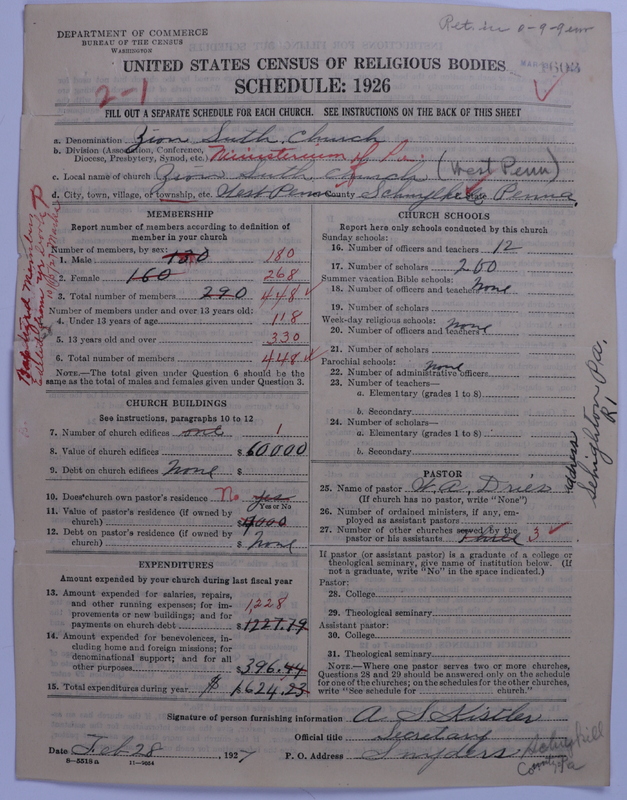 DEPARTMENT OF COMMERCE
BUREAU OF THE CENSUS
WASHINGTON
UNITED STATES CENSUS OF RELIGIOUS BODIES
SCHEDULE: 1926
2-1
FILL OUT A SEPARATE SCHEDULE FOR EACH CHURCH. SEE INSTRUCTIONS ON THE BACK OF THIS SHEET
a. Denomination Zion Luth. Church
b. Division (Association, Conference, Diocese, Presbytery, Synod, etc.) Ministerium of Pa.
c. Local name of church Zion Luth. Church (West Penn)
d. City, town, village, or township, etc. West Penn County Schuylkill Penna.
MEMBERSHIP
Report number of members according to definition of
member in your church
Number of members, by sex:
1. Male 130 180
2. Female 160 268
3. Total number of members 290 448
Number of members under and over 13 years old:
4. Under 13 years of age 118
5. 13 years old and over 330
6. Total number of members 448
NOTE.—The total given under Question 6 should be the
same as the total of males and females given under Question 3.
CHURCH BUILDINGS
See instructions, paragraphs 10 to 12
7. Number of church edifices one 1
8. Value of church edifices $ 60000
9. Debt on church edifices None $
10. Does church own pastor's residence No yes
Yes or No
11. Value of pastor's residence (if owned by
church) $ 4000
12. Debt on pastor's residence (if owned by
church) $ None
EXPENDITURES
Amount expended by your church during last fiscal year
13. Amount expended for salaries, repairs,
and other running expenses; for im-
provements or new buildings; and for
payments on church debt $ 1227.79 1,228
14. Amount expended for benevolences, in-
cluding home and foreign missions; for
denominational support; and for all
other purposes $ 396.44
15. Total expenditures during year $ 1624.23
CHURCH SCHOOLS
Report here only schools conducted by this church
Sunday schools:
16. Number of officers and teachers 12
17. Number of scholars 200
Summer vacation Bible schools:
18. Number of officers and teachers None
19. Number of scholars
Week-day religious schools:
20. Number of officers and teachers None
21. Number of scholars
Parochial schools: None
22. Number of administrative officers
23. Number of teachers—
a. Elementary (grades 1 to 8)
b. Secondary
24. Number of scholars—
a. Elementary (grades 1 to 8)
b. Secondary
PASTOR
25. Name of pastor W. A. Dries
(If church has no pastor, write "None")
26. Number of ordained ministers, if any, em-
ployed as assistant pastors
27. Number of other churches served by the
pastor or his assistants three 3
If pastor (or assistant pastor) is a graduate of a college or
theological seminary, give name of institution below. (If
not a graduate, write "No" in the space indicated.)
Pastor:
28. College
29. Theological seminary
Assistant pastor:
30. College
31. Theological seminary
NOTE.—Where one pastor serves two or more churches,
Questions 28 and 29 should be answered only on the schedule
for one of the churches; on the schedules for the other churches,
write "See schedule for church."
address Lehighton Pa.
R1
Signature of person furnishing information A. S. Kistler
Official title Secretary
Date Feb 28, 1927 P. O. Address Snyders Schuylkill
County Pa
8—5518a 11—9024